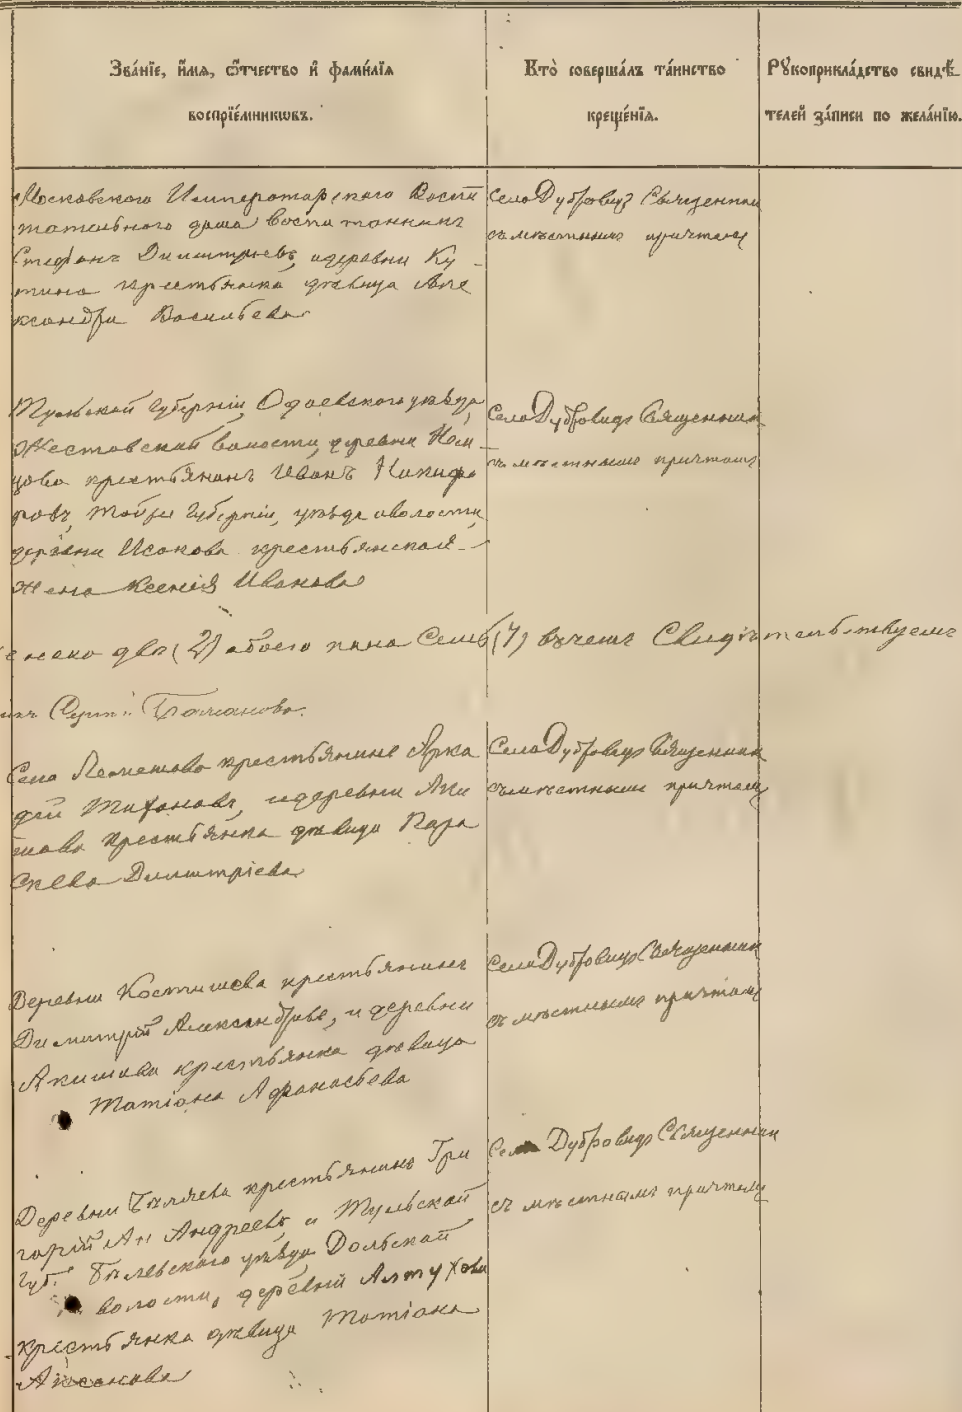 Зва́нїе, и́мѧ, ѻ҆́тчество и҆ фами́лїѧ
воспрїе́мникѡвъ.
Кто̀ соверша́лъ та́инство
креще́нїѧ.
Рꙋкоприкла́дство свидѣ-
телей за́писи по жела́нїю.
Московскаго Императорскаго Воспи
тательнаго дома воспитанникъ
Стефанъ Димитріевъ, и деревни Ку-
тина крестьянка дѣвица Але
ксандра Васильева
Села Дубровицъ Священникъ
съ мѣстнымъ причтомъ
Тульской Губерніи, Одоевскаго уѣзда,
Жестовской волости, деревни Нѣм-
цова крестьянинъ Иванъ Никифо
ровъ, той же Губерніи, уѣзда и волости,
деревни Исакова крестьянская
жена Ксенія Иванова
Села Дубровицъ Священникъ
съ мѣстнымъ причтомъ
женска два (2) обоего пола Семь (7) въ чемъ Свидѣтельствуемъ
Села Лемешова крестьянинъ Арка
дій Тихоновъ, и деревни Аки
шова крестьянка дѣвица Пара
скева Димитріева
Села Дубровицъ Священникъ
съ мѣстнымъ причтомъ
Деревни Костишева крестьянинъ
Димитрій Александровъ, и деревни
Акишова крестьянка дѣвица
Татіана Афанасьева
Села Дубровицъ Священникъ
съ мѣстнымъ причтомъ
Деревни Бѣляева крестьянинъ Гри
горій Ан Андреевъ, и Тульской
Губ. Бѣлевскаго уѣзда Дольской
волости, деревни Алтухова
крестьянка дѣвица Татіана
Аксенова
Села Дубровицъ Священникъ
съ мѣстнымъ причтомъ